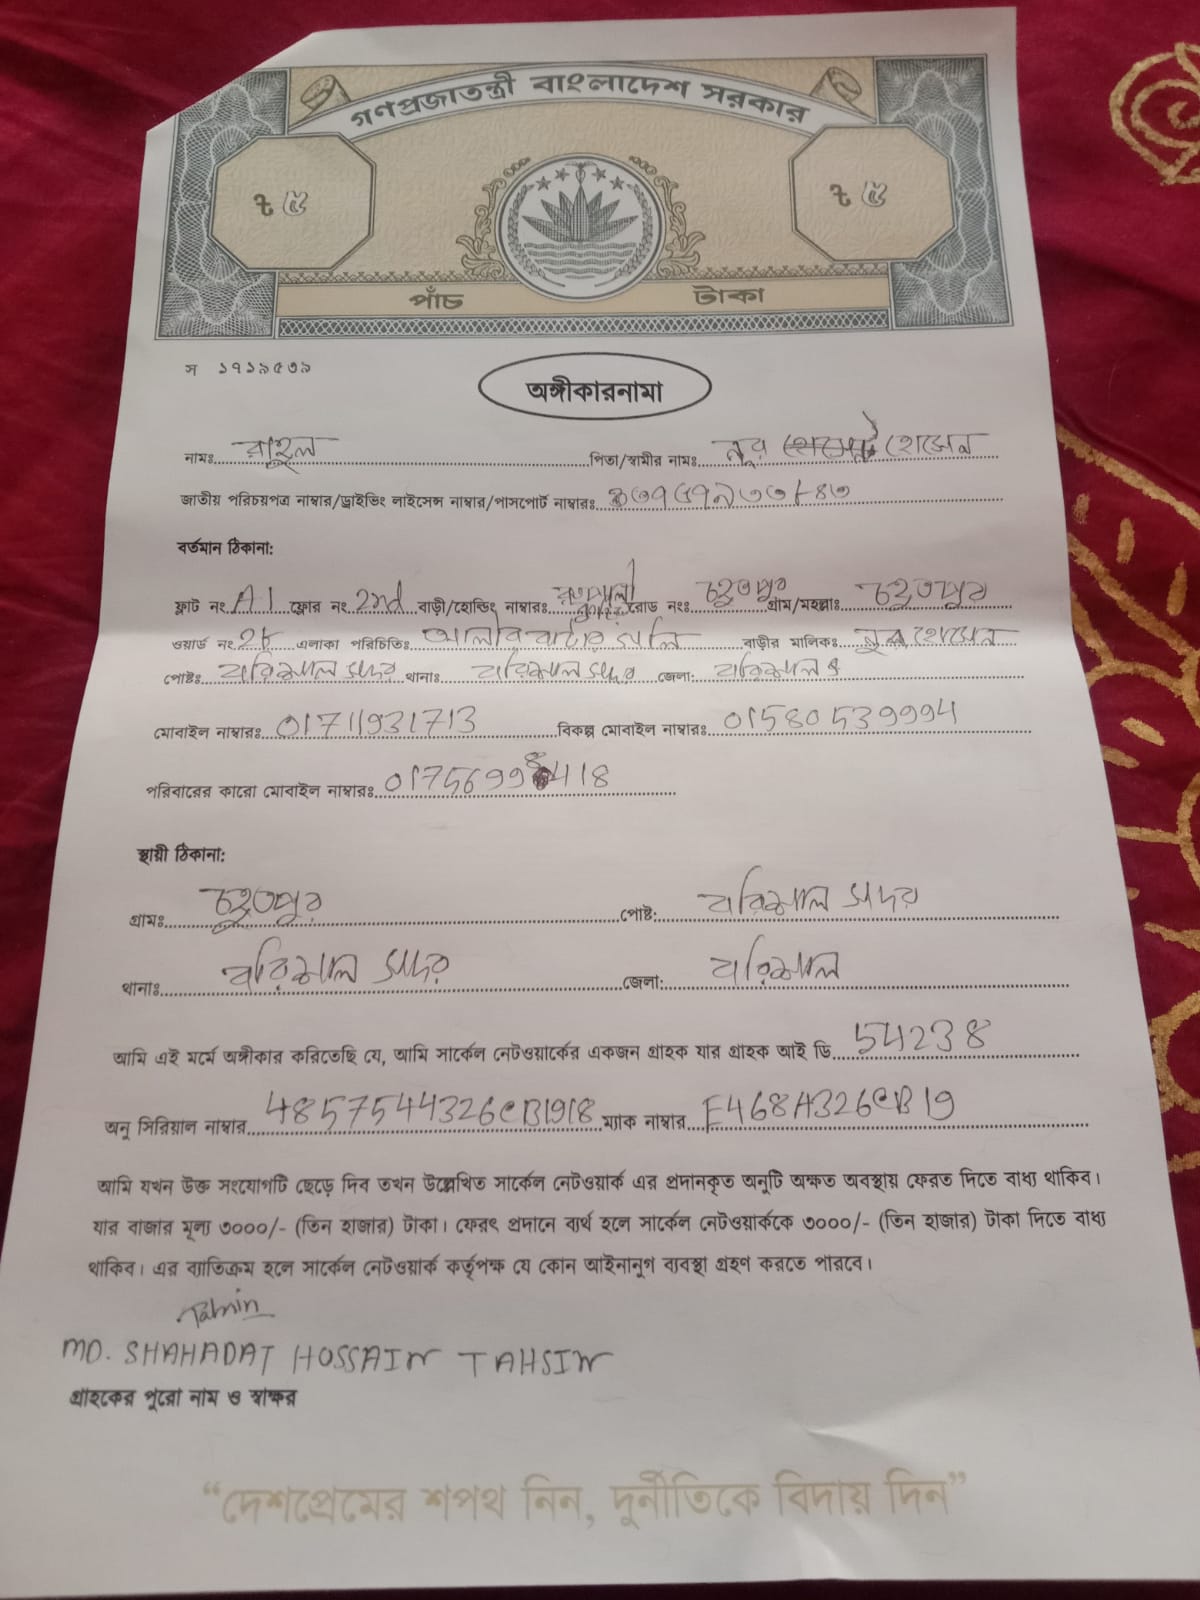 গণপ্রজাতন্ত্রী বাংলাদেশ সরকার
৳ ৫ ৳ ৫
পাঁচ টাকা
স ১৭১৯৫৩৯
অঙ্গীকারনামা
নামঃ রাহুল পিতা/স্বামীর নামঃ নুর হোসেন
জাতীয় পরিচয়পত্র নাম্বার/ড্রাইভিং লাইসেন্স নাম্বার/পাসপোর্ট নাম্বারঃ
বর্তমান ঠিকানা:
ফ্লাট নং A1 ফ্লোর নং 2nd বাড়ী/হোল্ডিং নাম্বারঃ রোড নংঃ গ্রাম/মহল্লাঃ
ওয়ার্ড নং এলাকা পরিচিতিঃ বাড়ীর মালিকঃ নুর হোসেন
পোষ্টঃ বরিশাল সদর থানাঃ বরিশাল সদর জেলা: বরিশাল
মোবাইল নাম্বারঃ 01711931713 বিকল্প মোবাইল নাম্বারঃ 01580539994
পরিবারের কারো মোবাইল নাম্বারঃ 01756998418
স্থায়ী ঠিকানা:
গ্রামঃ পোষ্ট: বরিশাল সদর
থানাঃ বরিশাল সদর জেলা: বরিশাল
আমি এই মর্মে অঙ্গীকার করিতেছি যে, আমি সার্কেল নেটওয়ার্কের একজন গ্রাহক যার গ্রাহক আই ডি 54238
অনু সিরিয়াল নাম্বার 48575444326CB1918 ম্যাক নাম্বার E468A326CB19
আমি যখন উক্ত সংযোগটি ছেড়ে দিব তখন উল্লেখিত সার্কেল নেটওয়ার্ক এর প্রদানকৃত অনুটি অক্ষত অবস্থায় ফেরত দিতে বাধ্য থাকিব।
যার বাজার মূল্য ৩০০০/- (তিন হাজার) টাকা। ফেরৎ প্রদানে ব্যর্থ হলে সার্কেল নেটওয়ার্ককে ৩০০০/- (তিন হাজার) টাকা দিতে বাধ্য
থাকিব। এর ব্যাতিক্রম হলে সার্কেল নেটওয়ার্ক কর্তৃপক্ষ যে কোন আইনানুগ ব্যবস্থা গ্রহণ করতে পারবে।
MD. SHAHADAT HOSSAIN TAHSIN
গ্রাহকের পুরো নাম ও স্বাক্ষর
“দেশপ্রেমের শপথ নিন, দুর্নীতিকে বিদায় দিন”